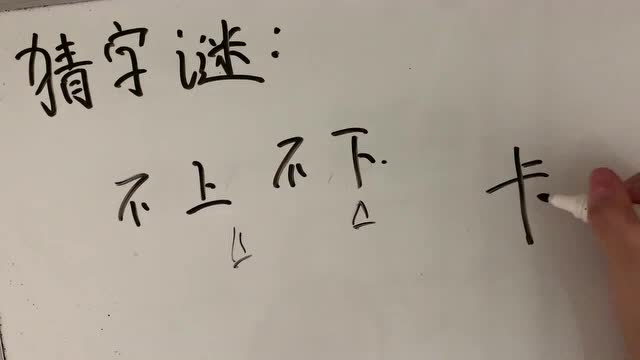 猜字谜:
不上不下. 卡